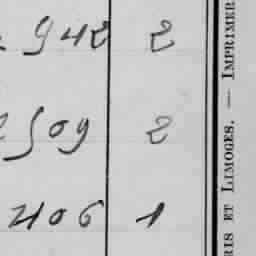 942 2
509 2
406 1
RIS ET LIMOGES. — IMPRIMER